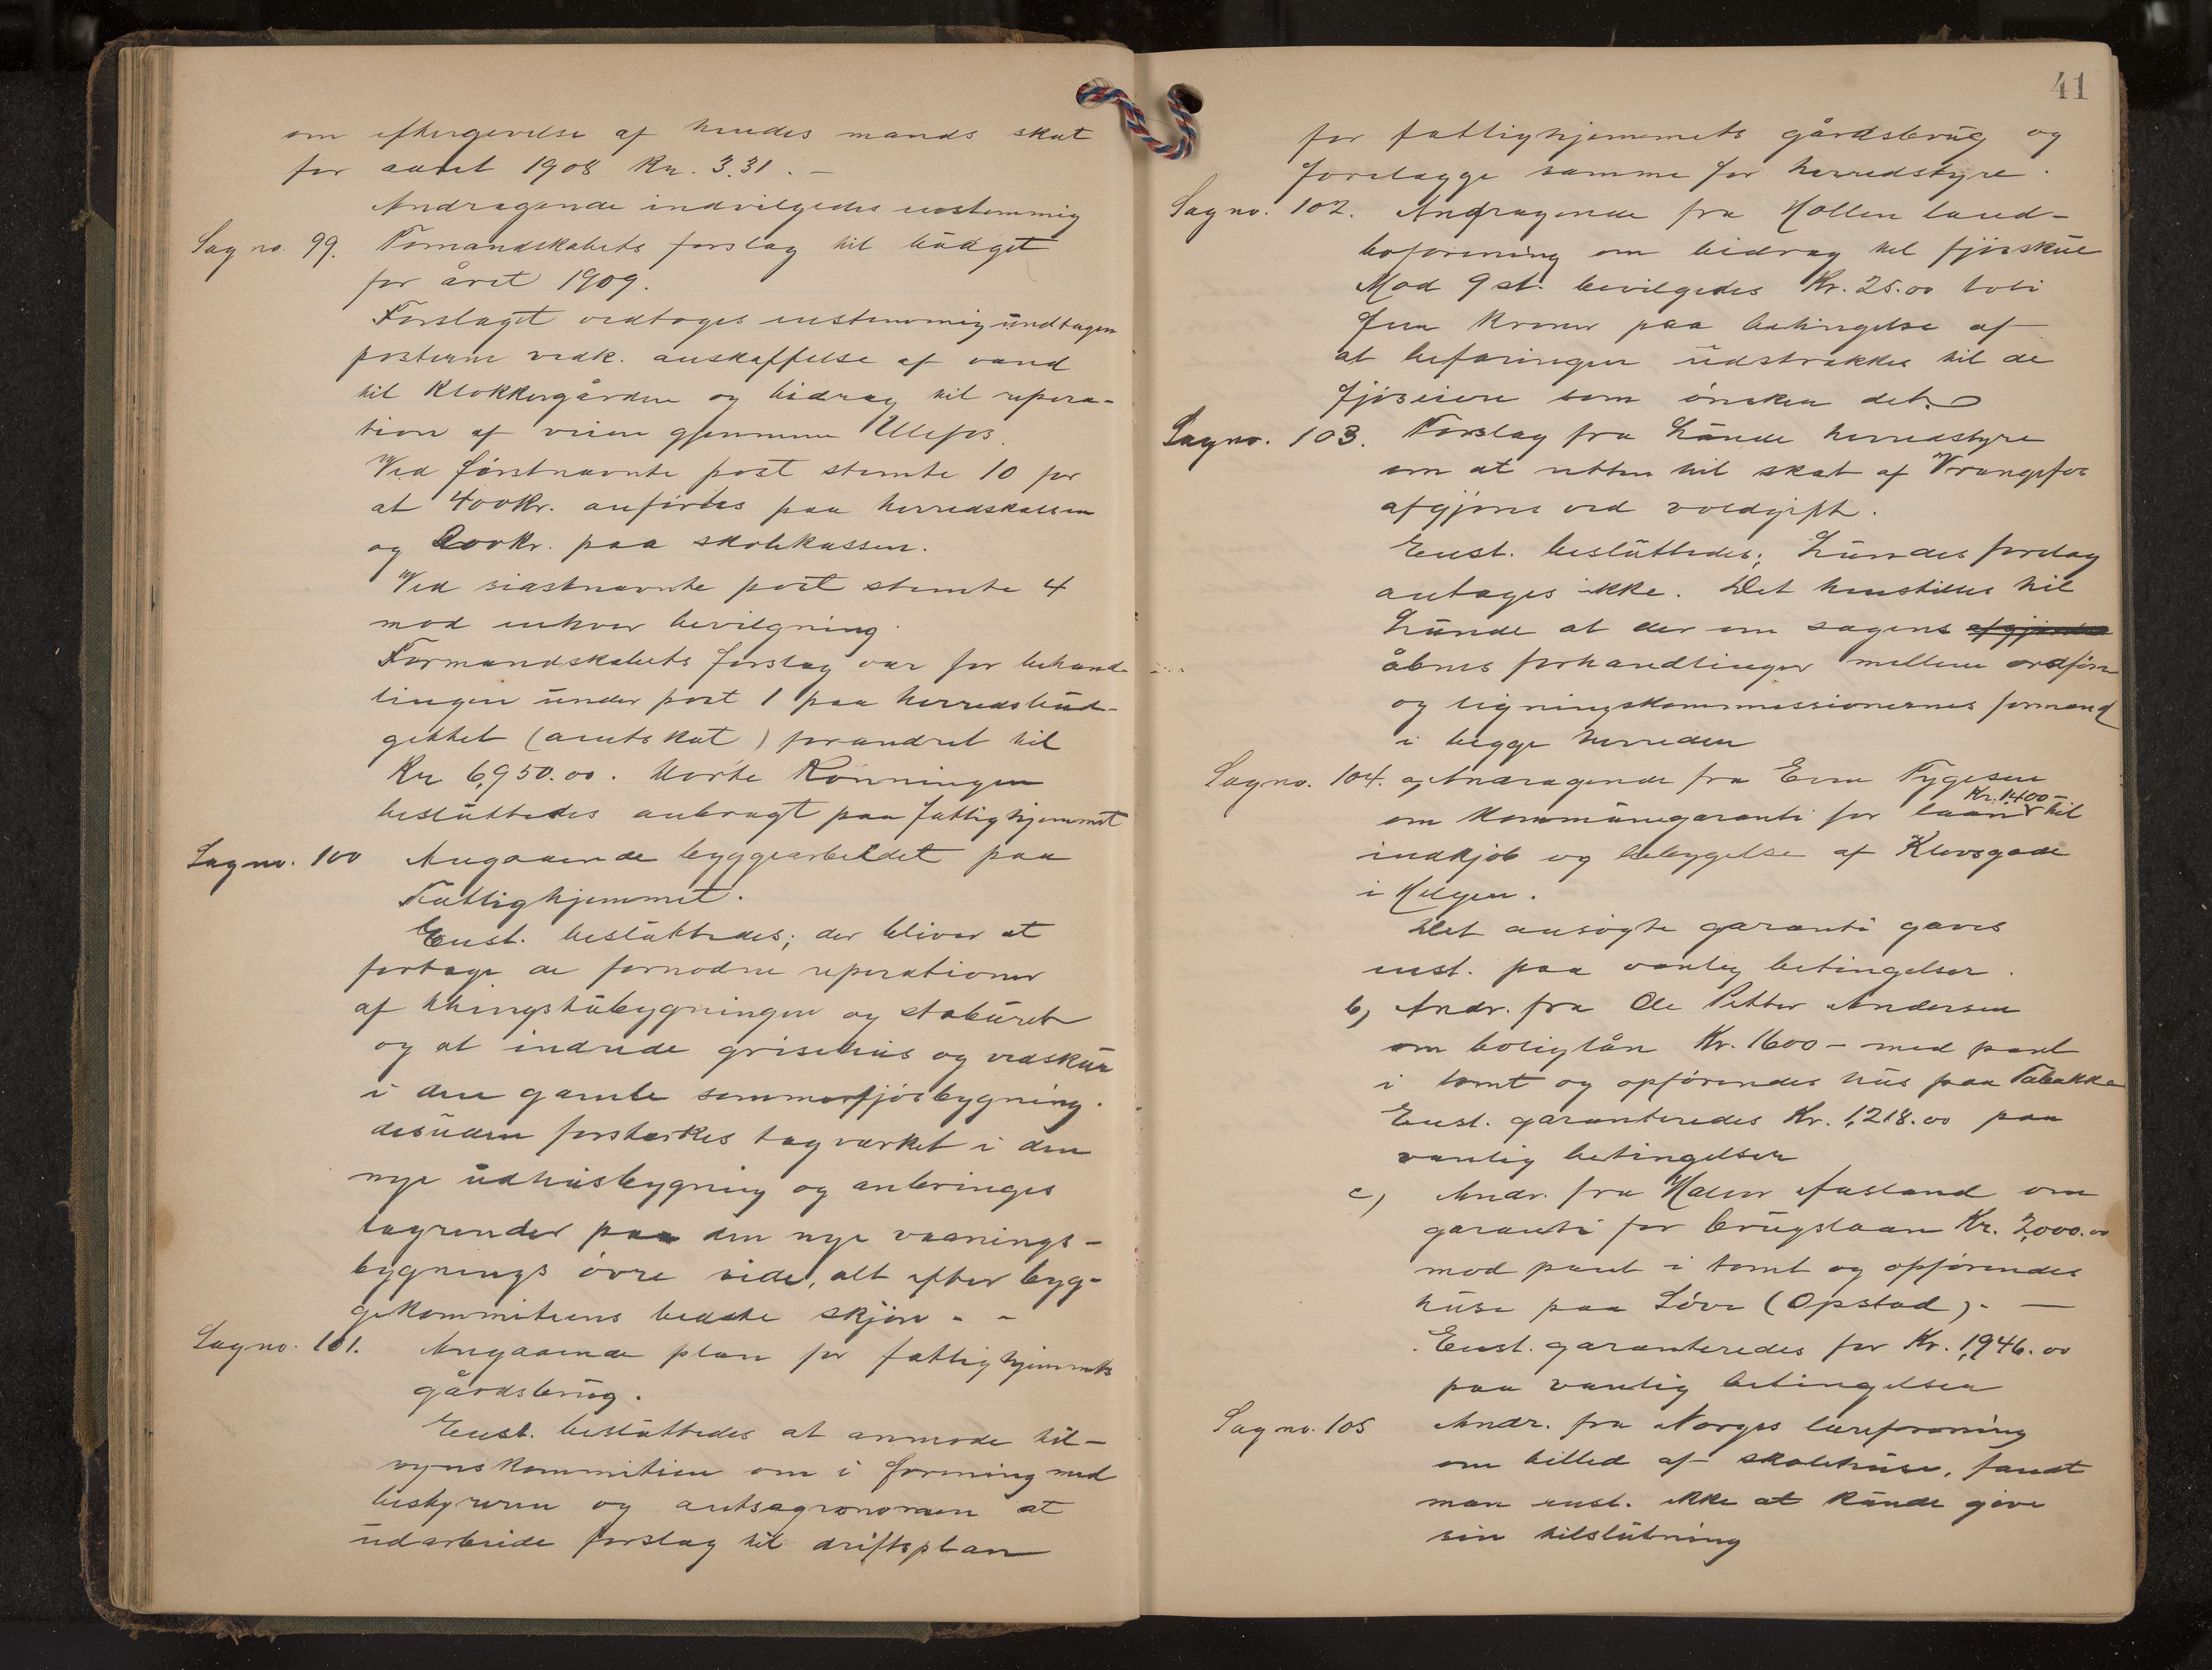 om eftergivelse af hendes mands skat
for aaret 1908 Kr. 3.31. –
Andragende indvilgedes enstemmig
Sag no. 99. Formandskabets forslag til büdget
for året 1909.
Forslaget vedtoges enstemmig ündtagen
posterne vedk. anskaffelse af vand
til Klokkergården og bidrag til repera-
tion af veien gjennem Ulefos.
Ved förstnævnte post stemte 10 for
at 400 Kr. anförtes paa herredskassen
og 200 Kr. paa skolekassen.
Ved sidstnævnte post stemte 4
mod enhver bevilgning.
Formandskabets forslag var for behand-
lingen ünder post 1 paa herredsbüd-
gettet (amtskat) forandret til
Kr 6,950.00. Rönningen
beslüttedes anbragt paa fattighjemmet
Sag no. 100 Angaaende byggearbeidet paa
Fattighjemmet.
Enst. beslüttedes; der bliver at
fortage de fornödne reperationer
af thingstübygningen og stabüret
og at indrede grisehüs og vedskür
i den gamle sommerfjösbygning.
desüden forstærkes tagværket i den
nye üdhüsbygning og anbringes
tagrender paa den nye vaanings-
bygnings övre side, alt efter byg-
gekommiteens bedste skjön - -
Sag no. 101. Angaaende plan for fattighjemmets
gårdsbrüg.
Enst. beslüttedes at anmode til-
synskommitien om i forening med
bestyreren og amtsagronomen at
üdarbeide forslag til driftsplan
41
for fattighjemmets gårdsbrüg og
forelægge samme for herredstyre.
Sag no. 102. Andragende fra Hollen land-
boforening om bidrag til fjösskue
Mod 9 st. bevilgedes Kr. 25.00 tobi
fem kroner paa betingelse af
at befaringen üdstrækkes til de
fjöseiere som önsker det.
Sag no. 103. Forslag fra Lünde herredstyre
om at retten til skat af Vrangfos
afgjöres ved voldgift.
Enst. beslüttedes; Lündes forslag
antages ikke. Det henstilles til
Lünde at der om sagens afgjörelse
åbnes forhandlinger mellem ordförer
og ligningskommissionernes formænd
i begge herreder
Sag no. 104. a, Andragende fra Tygesen
om kommünegaranti for laan Kr. 1,400 – til
indkjöb og bebygelse af
i Helgen.
Det ansögte garanti gaves
enst. paa vanlig betingelser.
b, Andr. fra Ole Petter Andersen
om boliglån Kr. 1600 – med pant
i tomt og opförendes hüs paa
Enst. garanteredes Kr. 1,218.00 paa
vanlig betingelser
c, Andr. fra Halvor Aasland om
garanti for brügslaan Kr. 2,000.00
mod pant i tomt og opförendes
hüse paa Löve (Opstad). —
Enst. garanteredes for Kr. 1,946.00
paa vanlig betingelser
Sag no. 105 Andr. fra Norges lærerforening
om billed af skolehüse, fandt
man enst. ikke at künde give
sin tilslütning